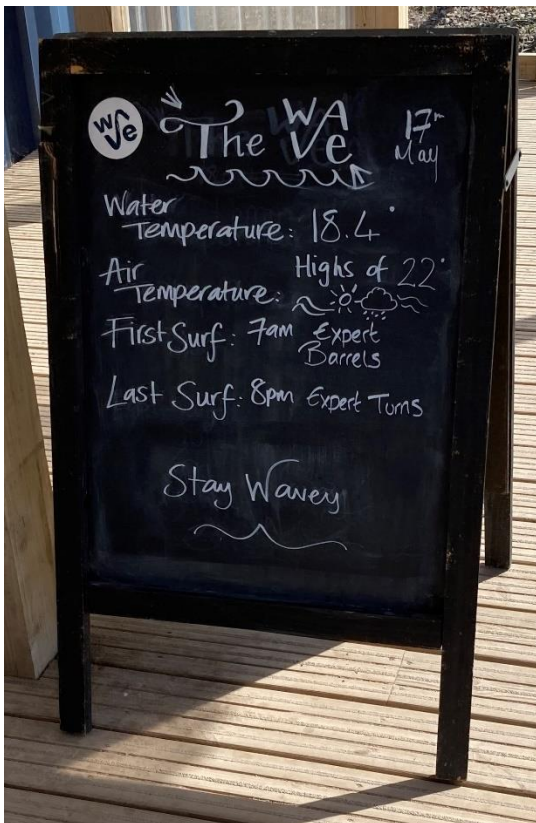 wave
The WAVe
17th May
Water
Temperature: 18.4°
Air Highs of 22°
Temperature:
First Surf: 7am Expert
Barrels
Last Surf: 8pm Expert Turns
Stay Wavey